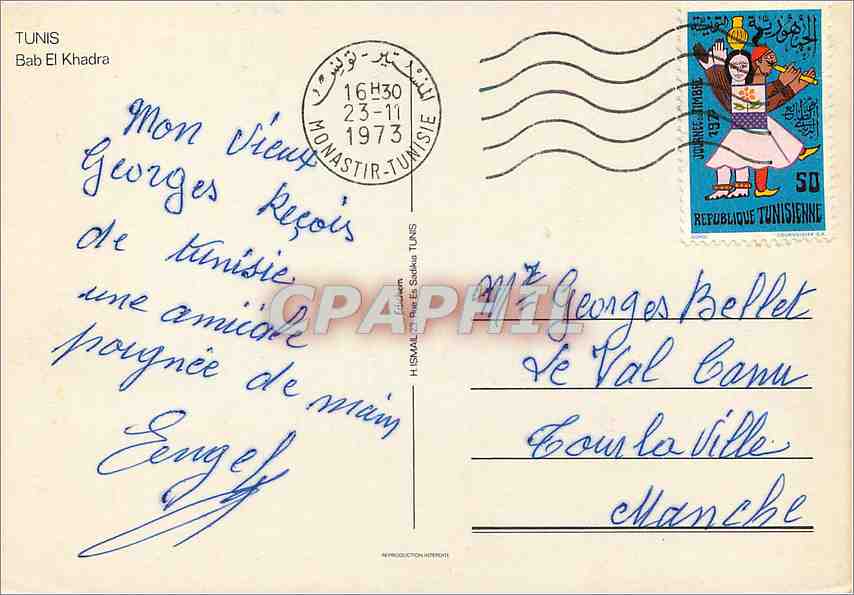 TUNIS
Bab El Khadra
المنستير - تونس
16H30
23-11
1973
MONASTIR-TUNISIE
الجمهورية التونسية
JOURNEE du TIMBRE
1973
50
REPUBLIQUE TUNISIENNE
COURVOISIER S.A.
Mon Vieux
Georges Reçois
de tunisie
une amicale
poignée de main
Engel
H. ISMAIL 23 Rue Es Sadikia TUNIS
CPAPHIL
Mr Georges Bellet
Le Val Canu
Tourlaville
Manche
REPRODUCTION INTERDITE